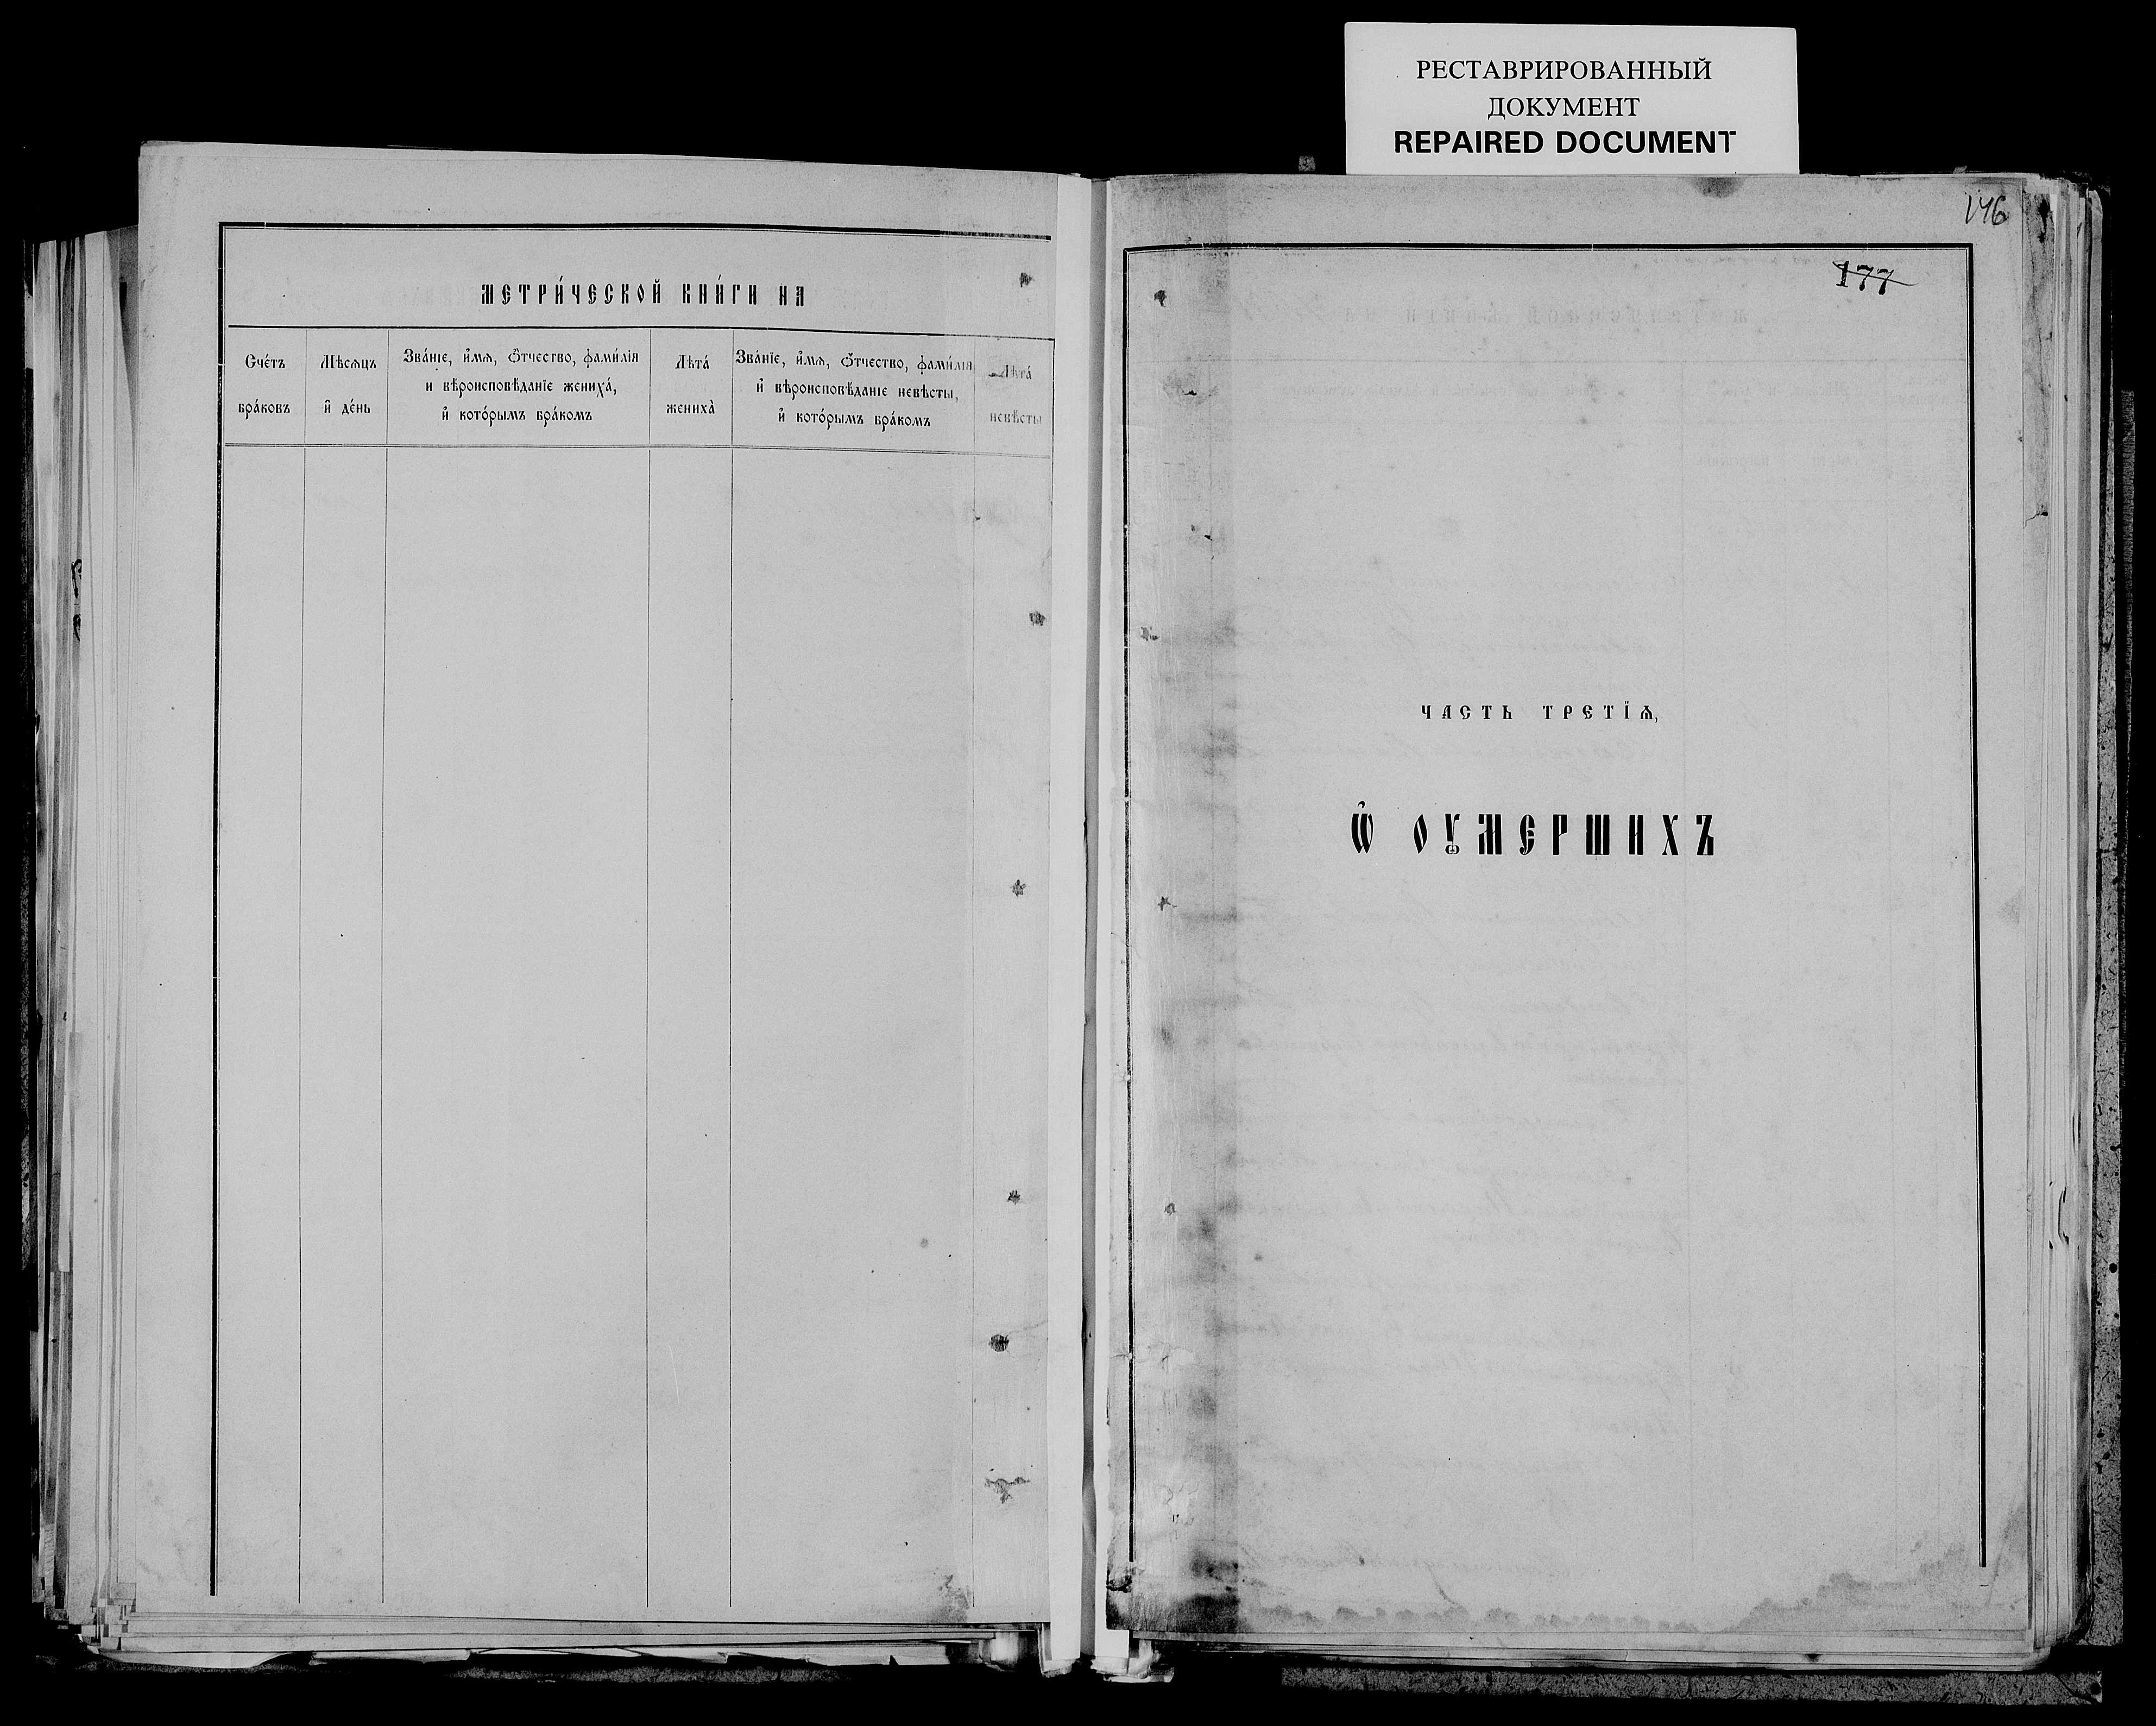 РЕСТАВРИРОВАННЫЙ
ДОКУМЕНТ
REPAIRED DOCUMENT
МЕТРИ́ЧЕСКОЙ КНИ́ГИ НА
Сче́тъ
бра́ковъ
Мѣсѧцъ
и҆ де́нь
Зва́нїе, и҆́мѧ, ѻ҆́тчество, фами́лїѧ
и вѣроисповѣ́данїе жениха́,
и҆ кото́рымъ бра́комъ
Лѣта́
жениха̀
Зва́нїе, и҆́мѧ, ѻ҆́тчество, фами́лїѧ
и҆ вѣроисповѣ́данїе невѣ́сты,
и҆ кото́рымъ бра́комъ
Лѣта́
невѣ́сты
146
177
ЧАСТЬ ТРЕТЇѦ,
Ѡ҆ ОУМЕРШИХЪ